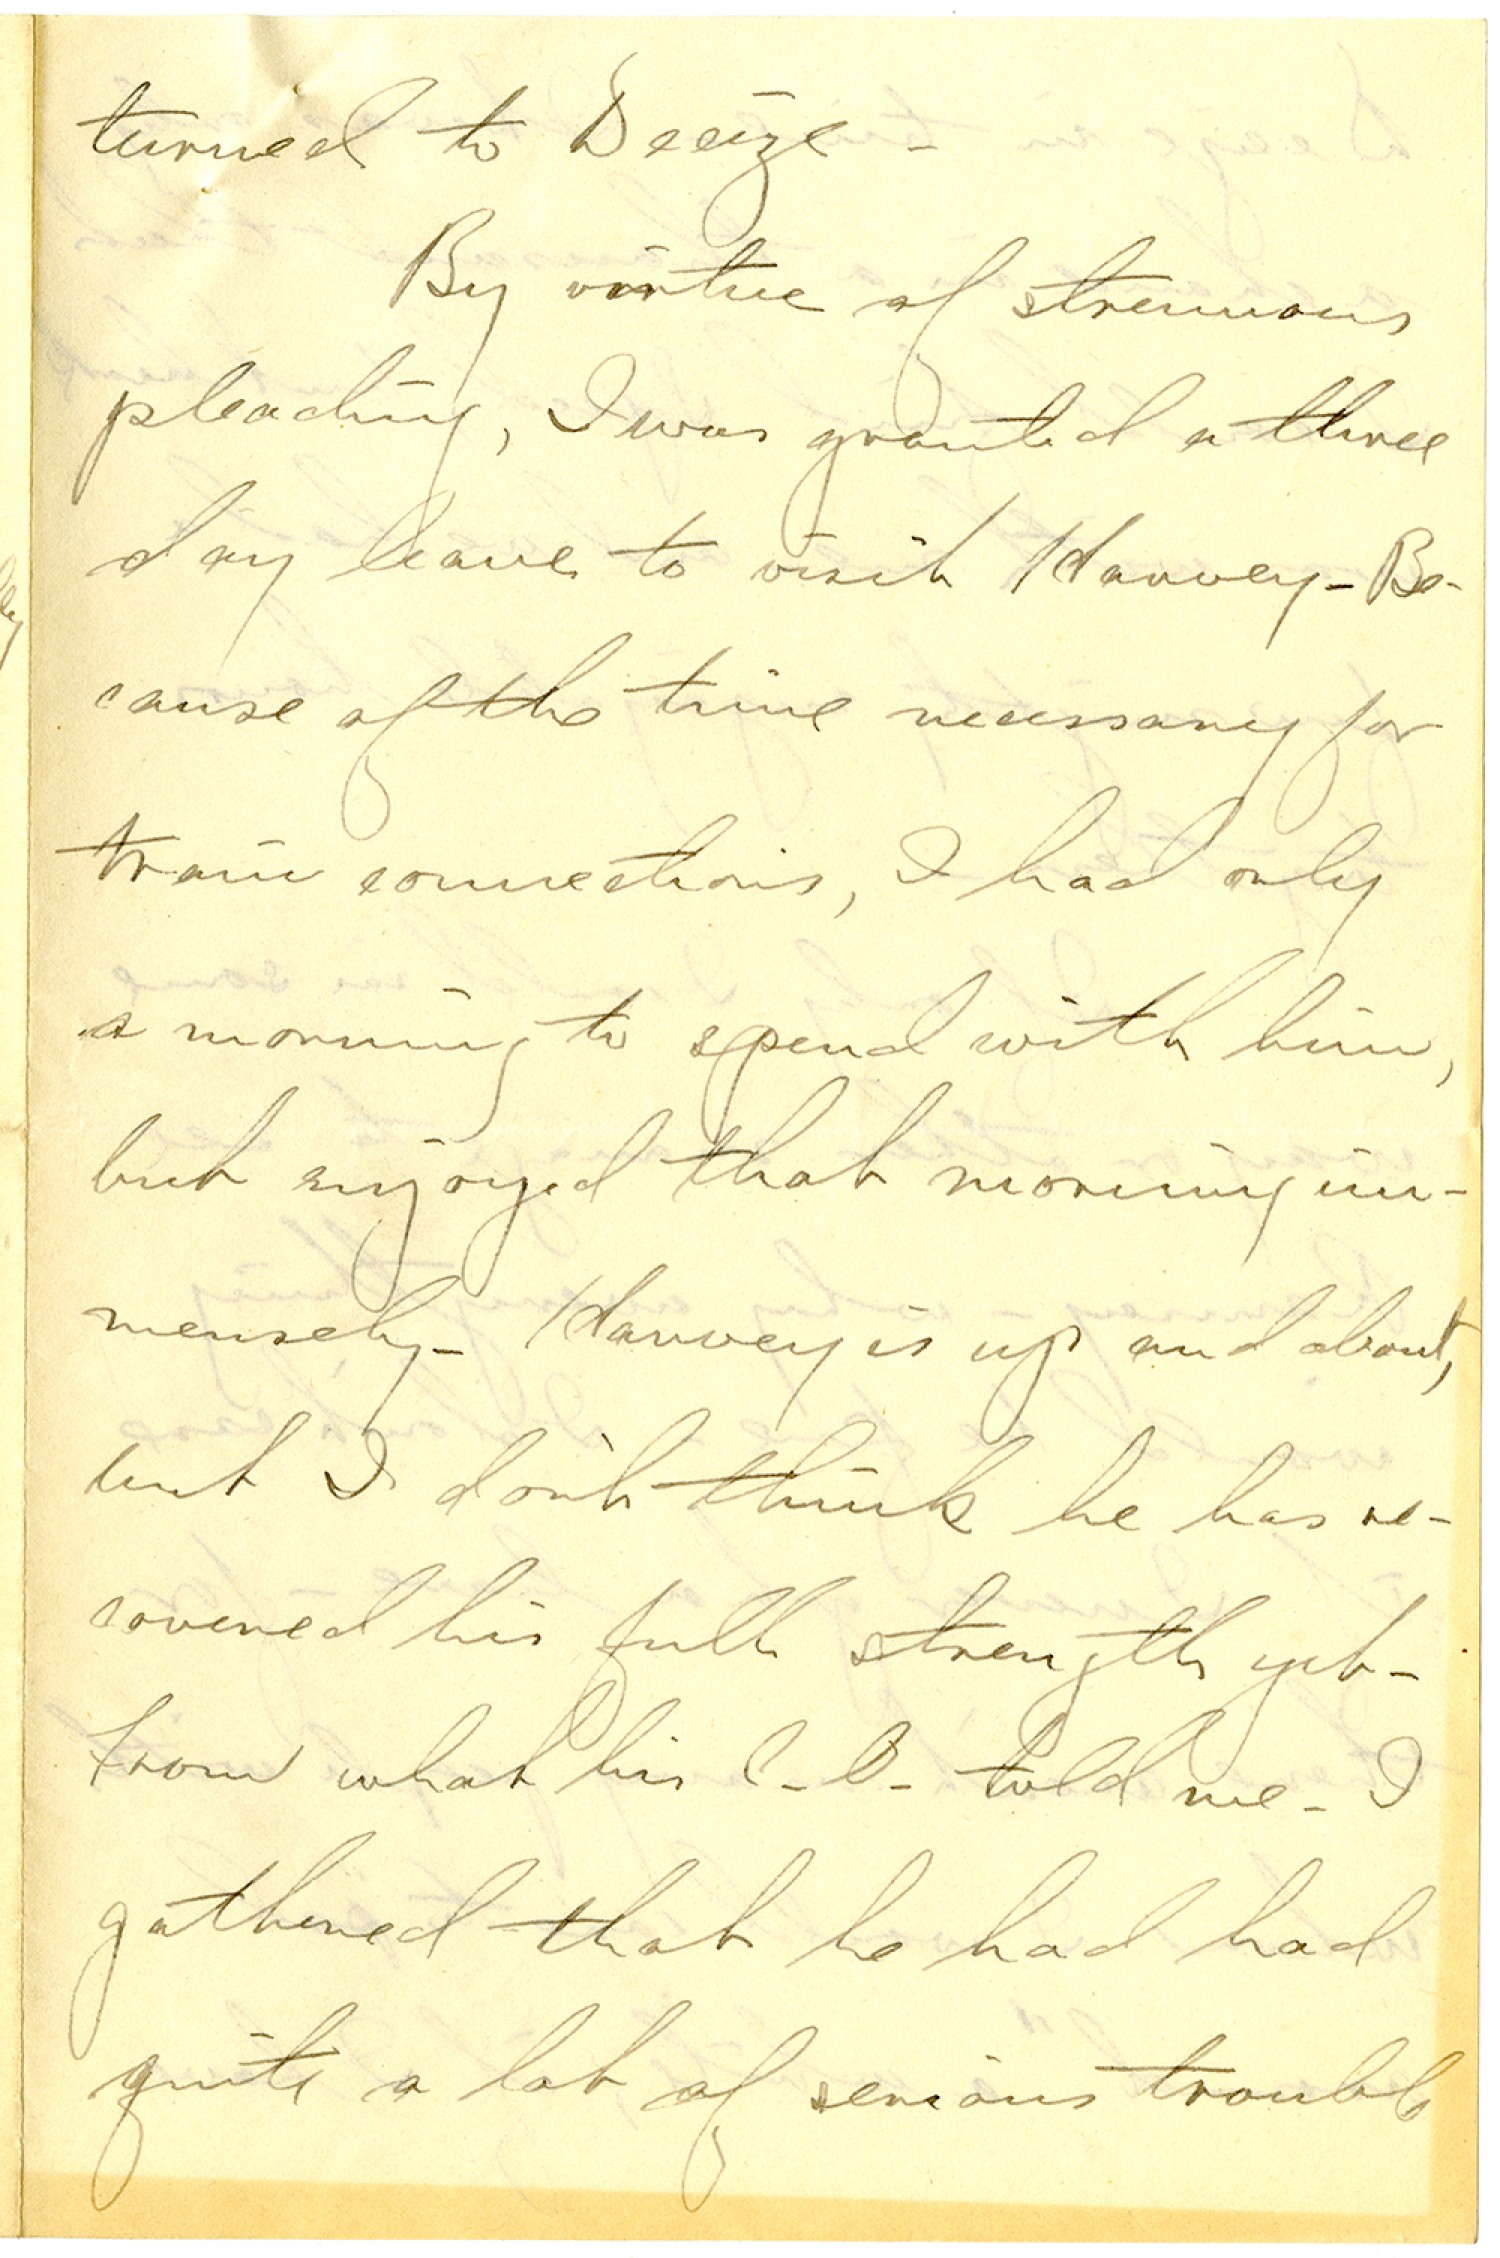 turned to Decize -
By virtue of strenuous
pleading, I was granted a three
day leave to visit Harvey - Be-
cause of the time necessary for
train connections, I had only
a morning to spend with him,
but enjoyed that morning im-
mensely - Harvey is up and about,
but I don't think he has re-
covered his full strength yet -
From what his C-O- told me - I
gathered that he had had
quite a lot of serious trouble